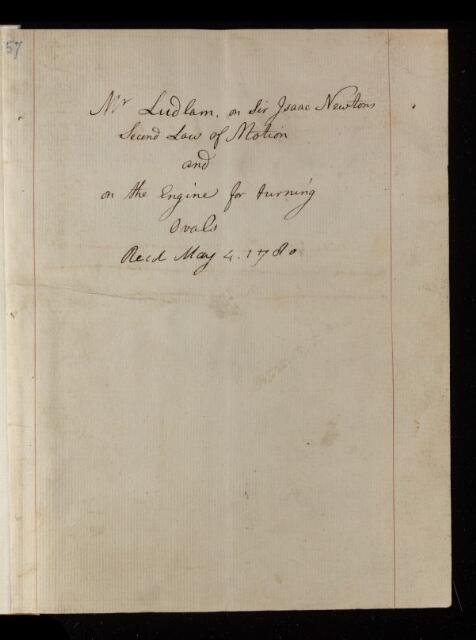 57
Mr Ludlam. on Sir Isaac Newtons
Second Law of Motion
and
on the Engine for turning
Ovals
Recd May 4. 1780